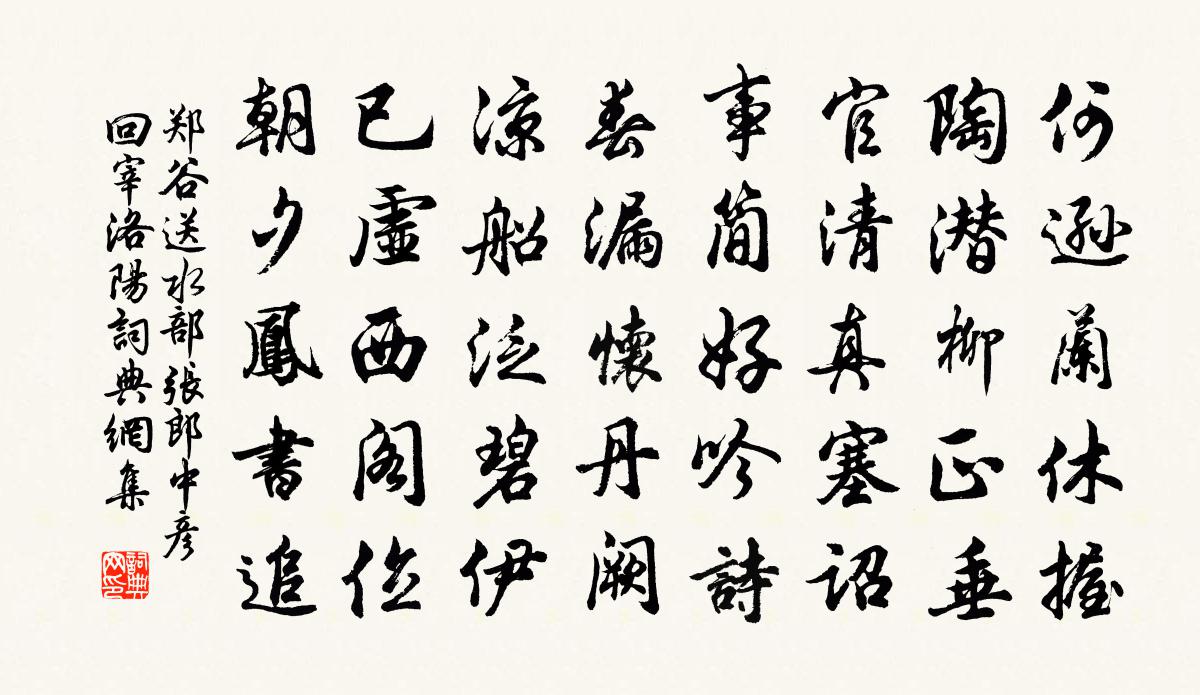 何遜蘭休握
陶潜柳正垂
官清真塞詔
事簡好吟詩
春漏懷丹闕
涼船泛碧伊
已虛西閣位
朝夕鳳書追
郑谷送水部張郎中彥
回宰洛陽詞典網集
詞典
网印